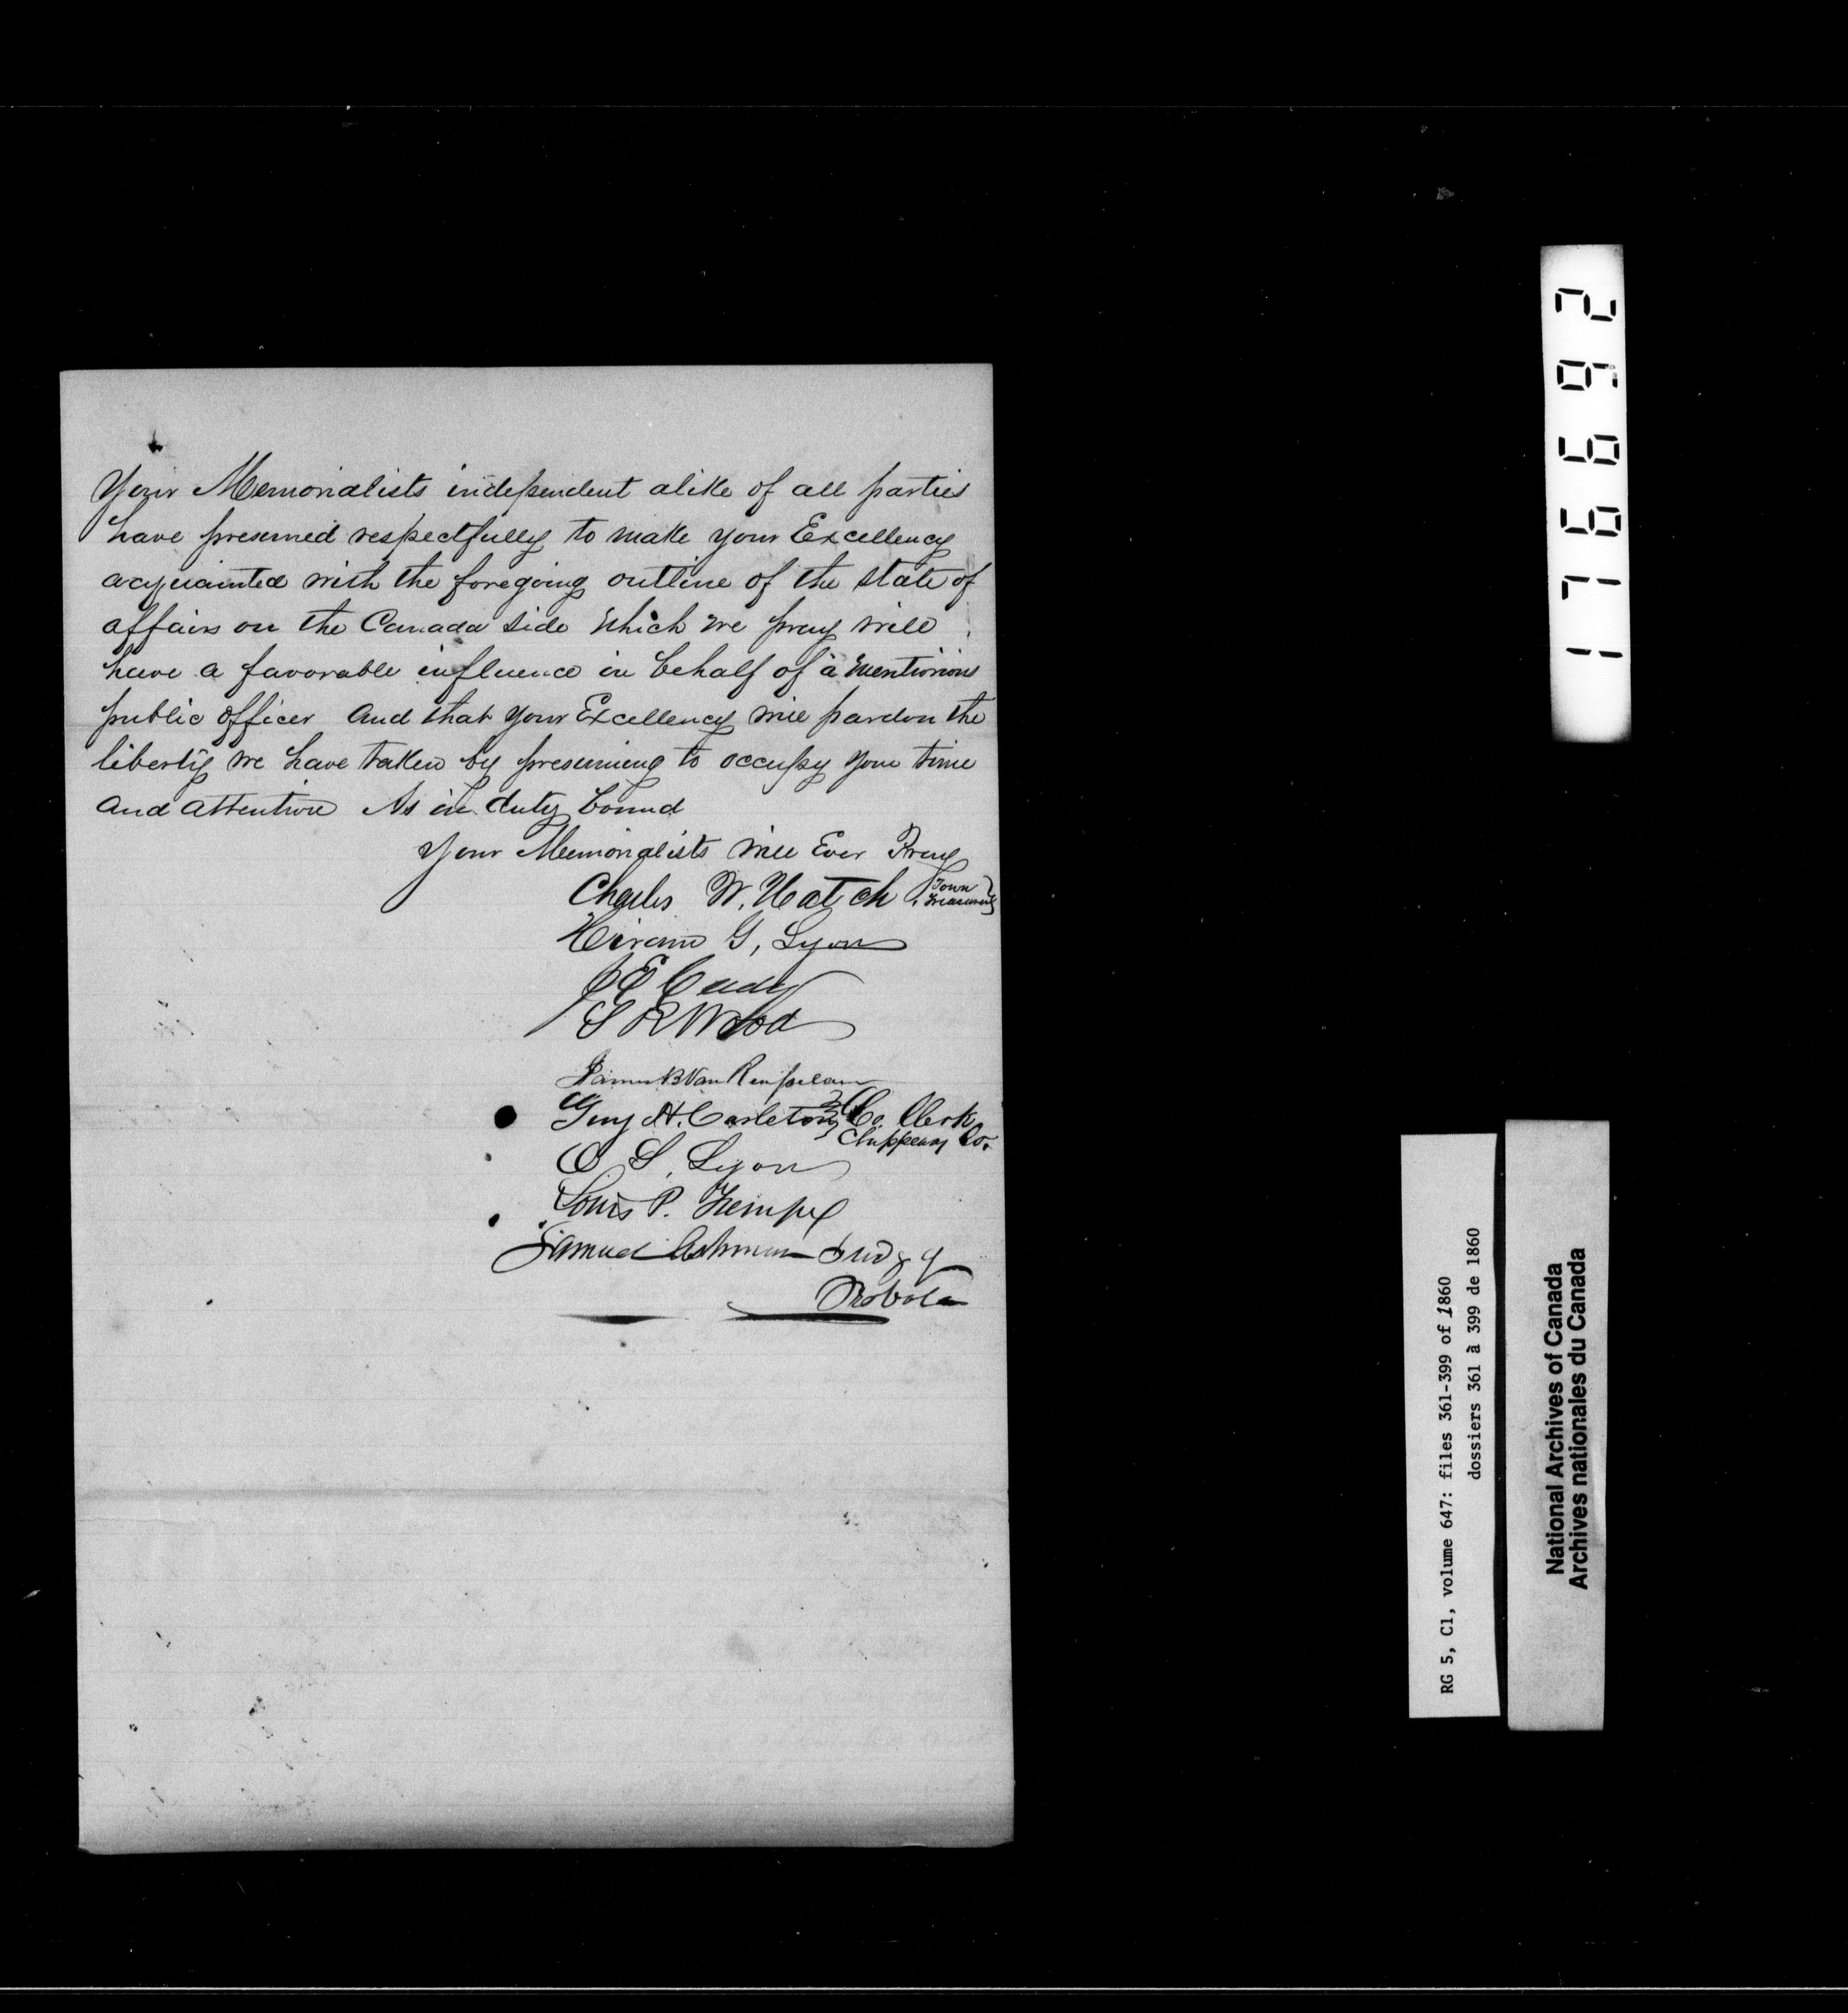 Your Memorialists independent alike of all parties
have presumed respectfully to make your Excellency
acquainted with the foregoing outline of the state of
affairs on the Canada side which we pray will
have a favorable influence in behalf of a meritorious
public officer and that your Excellency will pardon the
liberty we have taken by presuming to occupy your time
and attention As in duty bound
Your Memorialists will Ever Pray
Charles W. Hatch Town
Treasurer
Hiram G, Lyon
J E Cady
S R Wood
James B Van Rensselaer
Guy H. Carleton Co. Clerk
Chippeway Co.
O S. Lyon
Louis P. Trempe
Samuel Ashmun Judge
Probate
176692
RG 5, C1, volume 647: files 361-399 of 1860
dossiers 361 à 399 de 1860
National Archives of Canada
Archives nationales du Canada